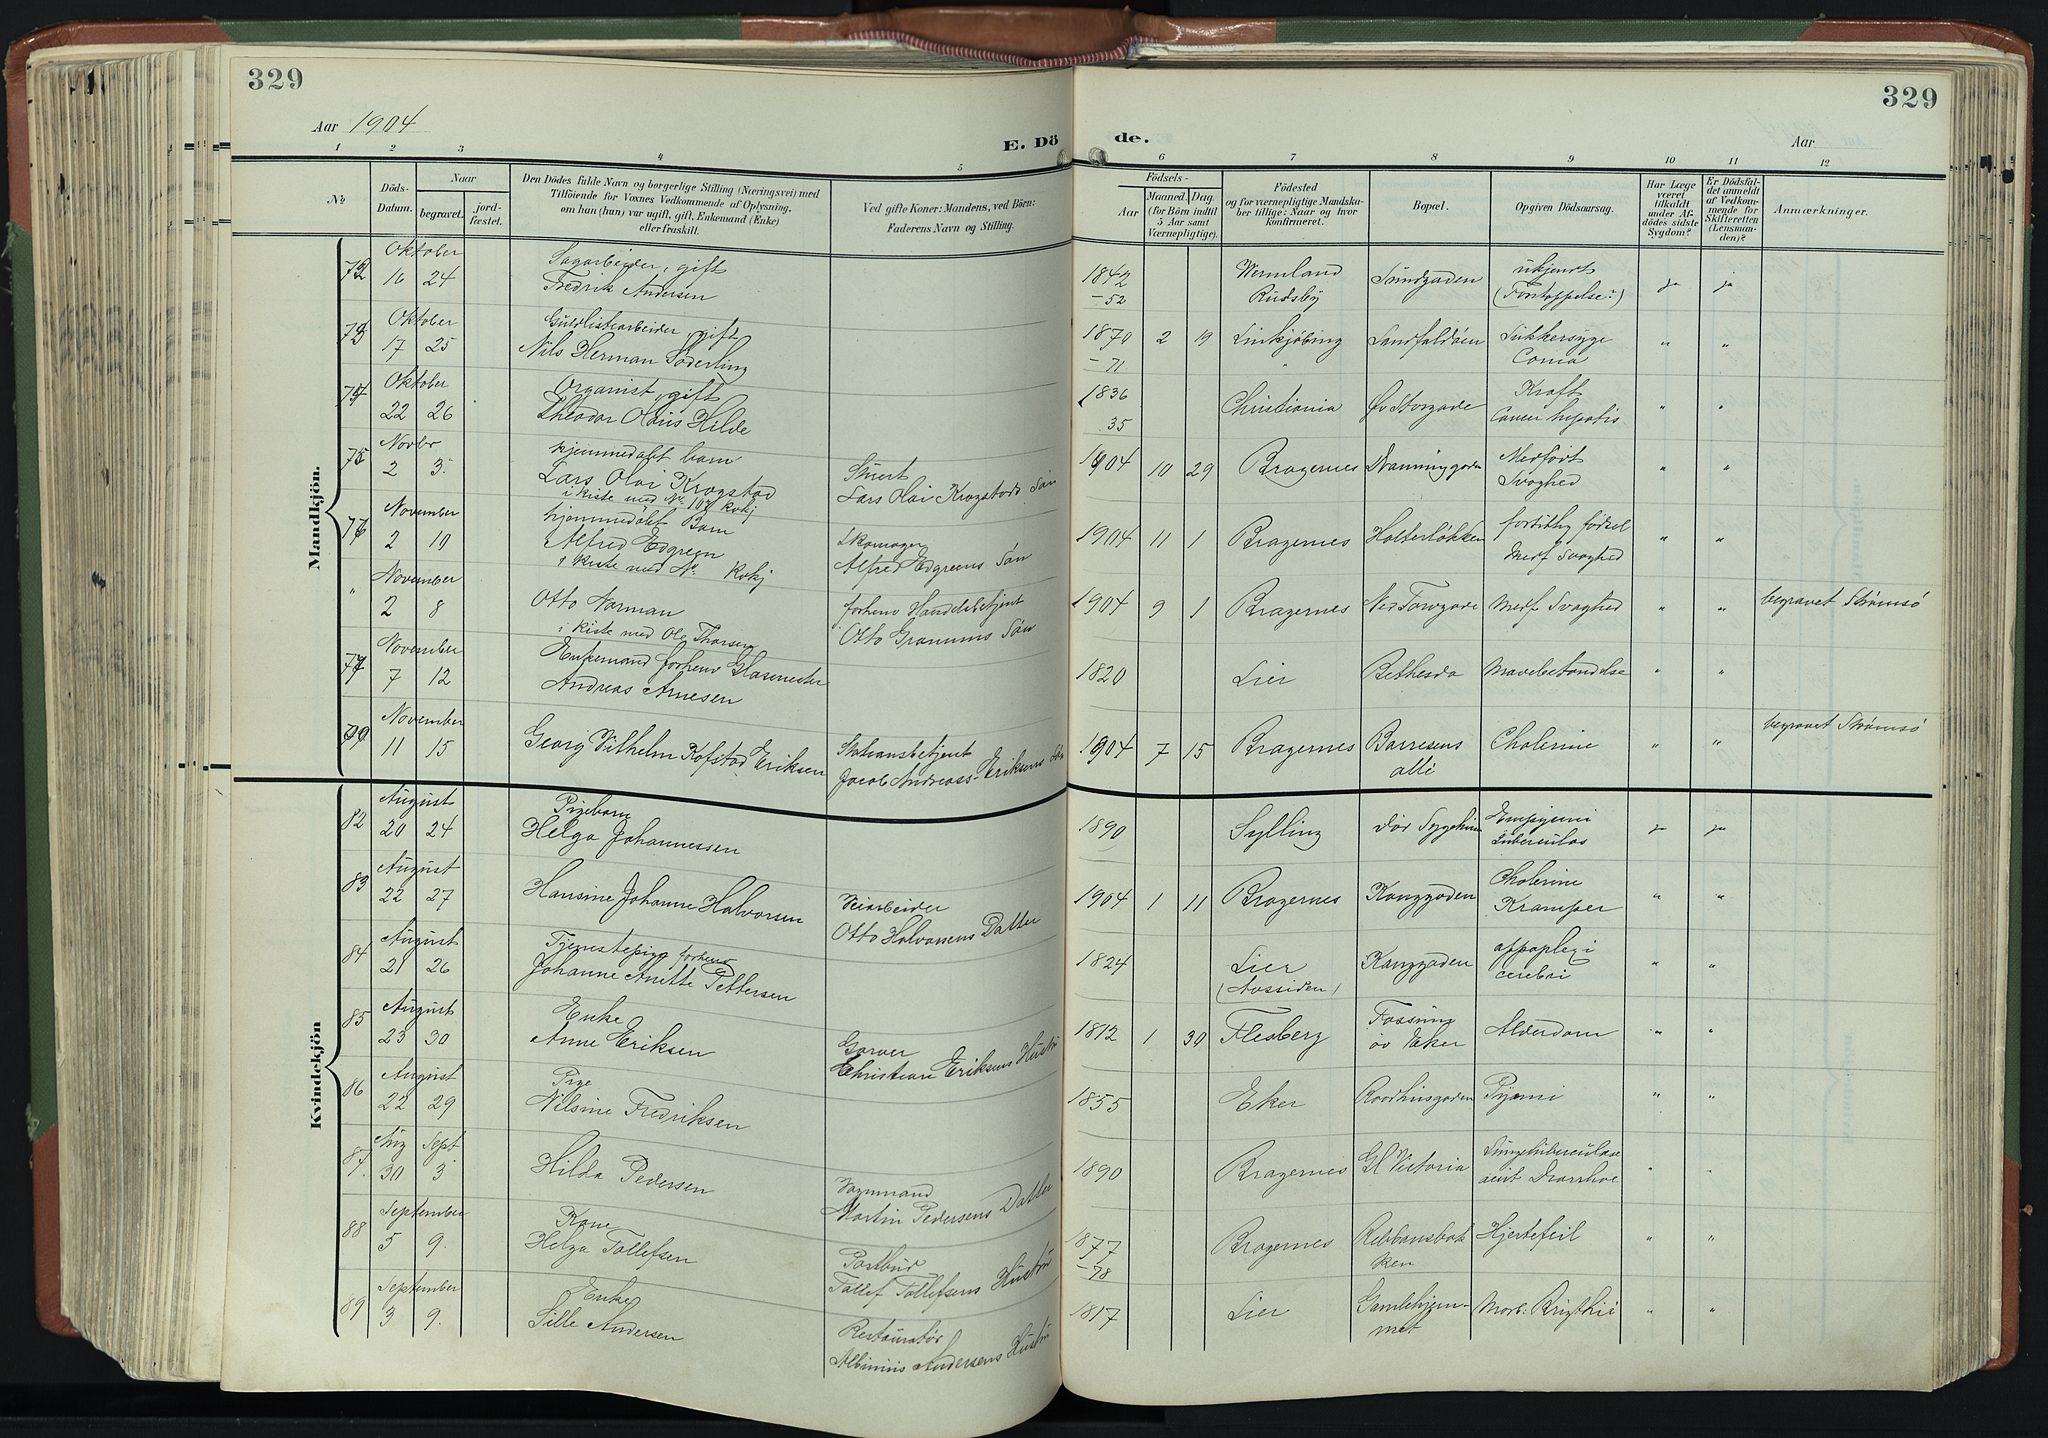 329
329
Aar 1904
E. Dö
de.
Aar
1 2 3 4 5
6 7 8 9 10 11 12
No
Döds-
Datum.
Naar
begravet.
jord-
fæstet.
Den Dödes fulde Navn og borgerlige Stilling (Næringsvei) med
Tilföiende for Voxnes Vedkommende af Oplysning,
om han (hun) var ugift, gift, Enkemand (Enke)
eller fraskilt.
Ved gifte Koner: Mandens, ved Börn:
Faderens Navn og Stilling.
Födsels-
Aar
Maaned. Dag.
(for Börn indtil
5 Aar samt
Værnepligtige).
Födested
og for værnepligtige Mandska-
ber tillige: Naar og hvor
konfirmeret.
Bopæl.
Opgiven Dödsaarsag.
Har Læge
været
tilkaldt
under Af-
dödes sidste
Sygdom?
Er Dödsfal-
det anmeldt
af Vedkom-
mende for
Skifteretten
(Lensman-
den)?
Anmærkninger.
Mandkjön.
Oktober
16 24
Sagarbeider, gift
Fredrik Andersen
1842
-52
Wermland
Rudsby
Sundgaden
ukjendt
(Forstoppelse?)
ja ja
Oktober
17 25
Guldlistearbeider, gift
Nils Herman Söderling
1870
-71
2 19
Linkjøbing
Landfaldøen
Sukkersyge
Coma
" "
Oktober
22 26
Organist, gift
Theodor Olaus Hilde
1836
35
Christiania
Øv Storgade
Kræft
Cancer hepatis
" "
75
Novbr
2 3.
hjemmedøbt barn
Lars Olai Krogstad
i kiste med No 107 Kvkj
Stuert
Lars Olai Krogstads Søn
1904 10 29
Bragernes
Dronninggaden
Medfødt
Svaghed
" "
76
November
2 10
hjemmedøbt Barn
Alfred Edgreen
i kiste med No Kvkj
Skomager
Alfred Edgreens Søn
1904 11 1
Bragernes
Holterløkken
fortidlig fødsel
Medf Svaghed
" "
"
November
2 8
Otto Norman
i kiste med Ole Thorsen
forhenv Handelsbetjent
Otto Granums Søn
1904 9 1
Bragernes
Ned Torvgade
Medf Svaghed
" "
begravet Strømsø
77
November
7 12
Enkemand forhenv Glasmester
Andreas Arnesen
1820
Lier
Bethesda
Mavebetændelse
" "
November
11 15
Georg Vilhelm Kofstad Eriksen
Stationsbetjent
Jacob Andreas Eriksens Søn
1904 7 15
Bragernes
Børresens
alle
Cholerine
" "
begravet Strømsø
Kvindekjön
82
August
20 24
Pigebarn
Helga Johannessen
1890
Sylling
Dør Sygehus
Empyemi
tuberculos
ja ja
83
August
22 27
Hansine Johanne Halvorsen
Veiarbeider
Otto Halvorsens Datter
1904 1 11
Bragernes
Konggaden
Cholerine
Kramper
" "
84
August
21 26
Tjenestepige forhenv
Johanne Anette Pettersen
1824
Lier
(Aossiden)
Konggaden
appoplexi
cerebri
" "
85
August
23 30
Enke
Anne Eriksen
Garver
Christian Eriksens Hustru
1812 1 30
Flesberg
Fossum
øv Eker
Alderdom
" "
86
August
22 29
Pige
Nilsine Fredriksen
1855
Eker
Raadhusgaden
Pyemi
" "
87.
Aug Sept
30 3
Hilda Pedersen
Vognmand
Martin Pedersens Datter
1890
Bragernes
Gl Victoria
Lungetuberculose
acut Diarrhoe
" "
88
September
5 9.
Kone
Helga Tollefsen
Postbud
Tollef Tollefsens Hustru
1877
-78
Bragernes
Rebbansbak
ken
Hjertefeil
" "
89
September
3 9.
Enke
Sille Andersen
Restauratør
Albinius Andersens Hustru
1817
Lier
Gamlehjem-
met
Morb. Brigthii
" "